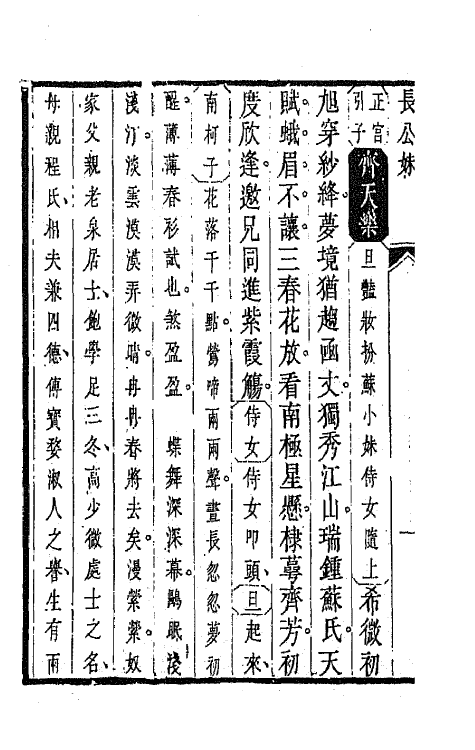 長公妹
正宮引子 齊天樂 旦豔妝扮蘇小妹侍女隨上 希微初
旭穿紗絳。夢境猶趨函丈。獨秀江山。瑞鍾蘇氏。天
賦蛾眉不讓。三春花放。看南極星懸。棣萼齊芳。初
度欣逢。邀兄同進紫霞觴。 侍女 侍女叩頭、 旦 起來、
南柯子 花落千千點。鶯啼兩兩聲。晝長忽忽夢初
醒。薄薄春衫試也。煞盈盈。 蝶舞深深幕。鷗眠淺
淺汀。淡雲漠漠弄微晴。冉冉春將去矣。漫縈縈。奴
家父親老泉居士、飽學足三冬、高少微處士之名、
母親程氏、相夫兼四德、傳寶婺淑人之譽、生有兩